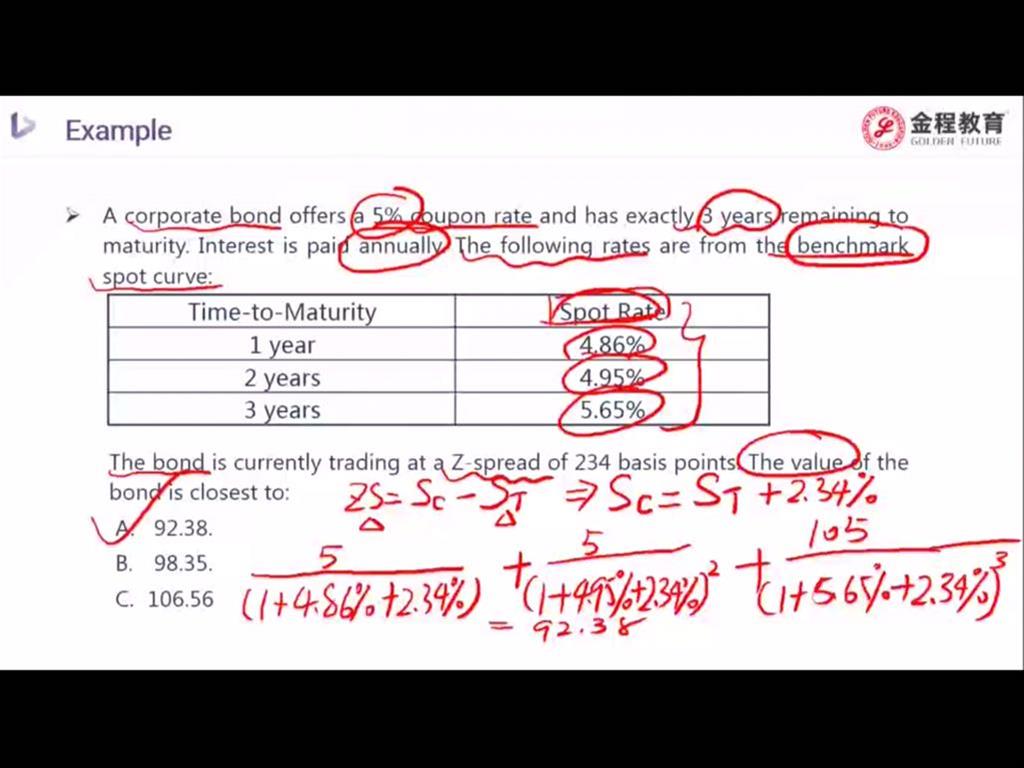 Example
金程教育
GOLDEN FUTURE
A corporate bond offers a 5% coupon rate and has exactly 3 years remaining to
maturity. Interest is paid annually. The following rates are from the benchmark
spot curve:
Time-to-Maturity Spot Rate
1 year 4.86%
2 years 4.95%
3 years 5.65%
The bond is currently trading at a Z-spread of 234 basis points. The value of the
bond is closest to:
ZS = Sc - ST ⇒ Sc = ST + 2.34%
A. 92.38.
B. 98.35.
C. 106.56
5 / (1+4.86%+2.34%) + 5 / (1+4.95%+2.34%)² + 105 / (1+5.65%+2.34%)³
= 92.38